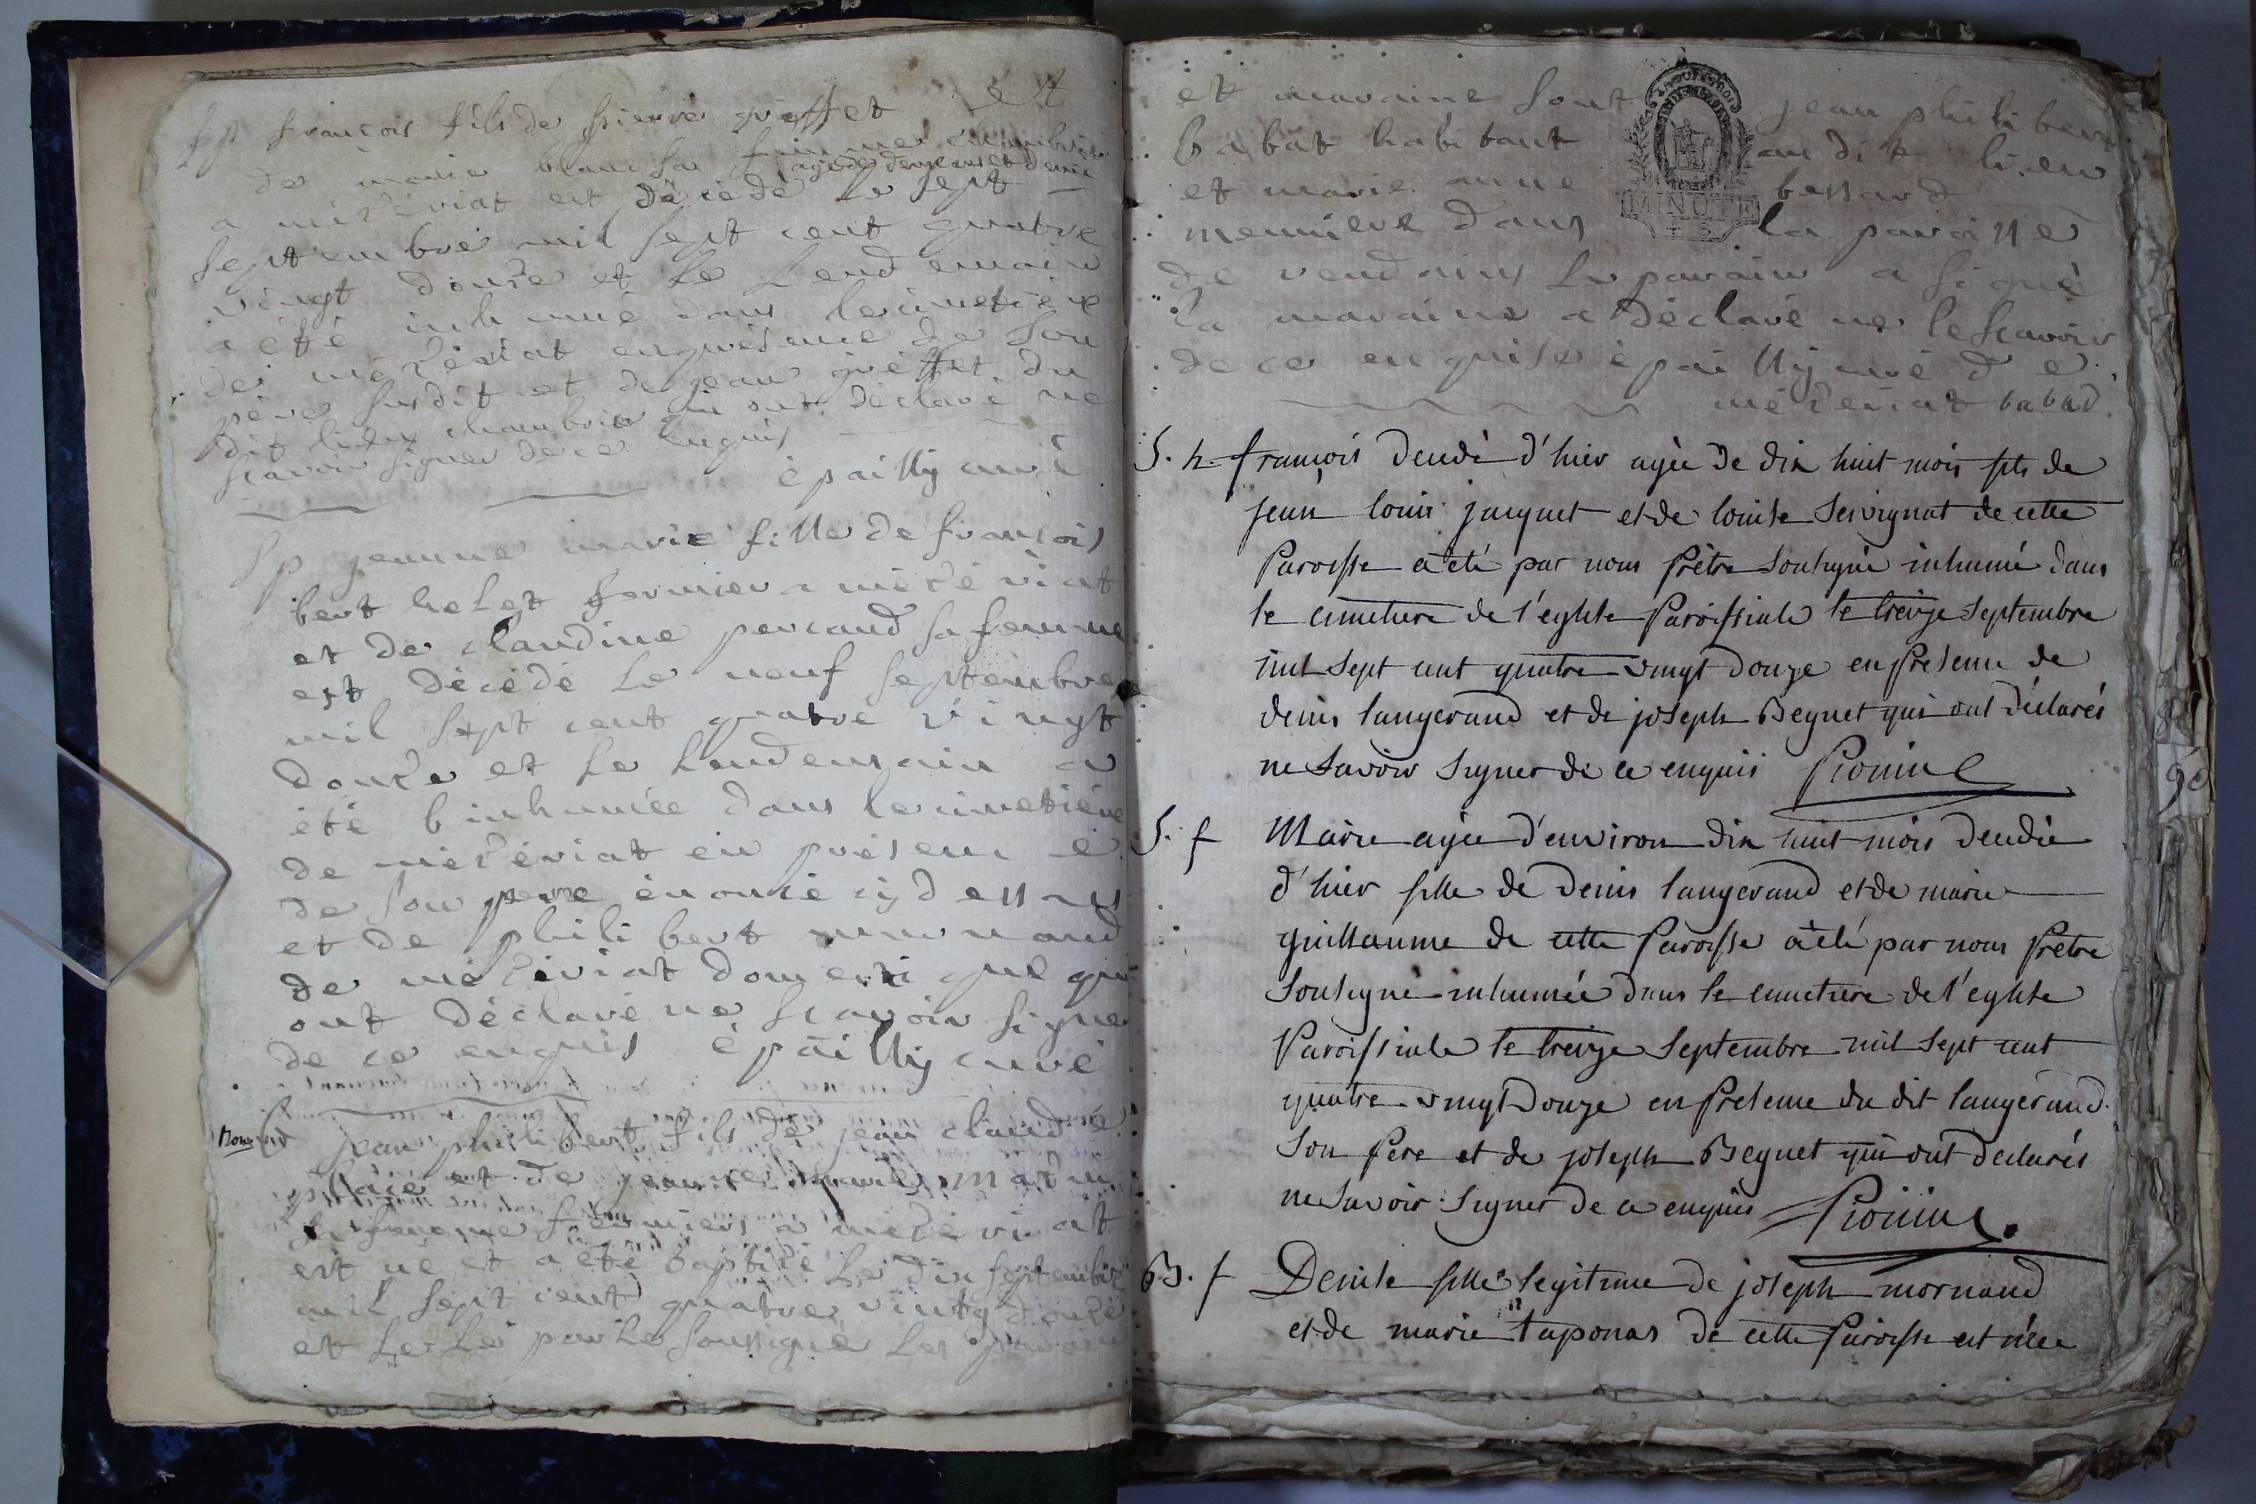 Sp françois fils de pierre griffet et
de marie blanc sa femme
agé de deux ans et demie
a mézériat est décédé le sept
septembre mil sept cent quatre
vingt douze et le lendemain
a été inhumé dans le cimetière
de mézériat en présence de son
père susdit et de jean griffet du
dit lieu qui ont déclaré ne
scavoir signer de ce enquis
épailly curé
Sp jeanne marie fille de francois
bert holet fermier a mézériat
et de claudine percaud sa femme
est décédé le neuf septembre
mil sept cent quatre vingt
douze et le lendemain a
été inhumée dans le cimetière
de mézériat en présence
de son père énoncé cy dessus
et de philibert
de mézériat domestique qui
ont déclaré ne scavoir signer
de ce enquis épailly curé
jean philibert fils de jean claude
et de jeanne marie
sa femme fermiers a mézériat
est né et a été baptizé le dix septembre
mil sept cent quatre vintg douze
et le par le soussigné les parain
et maraine sont jean philibert
babat habitant audit lieu
et marie anne bessard
meuniere dans la paroisse
de vendeins le parain a signé
la maraine a déclaré ne le scavoir
de ce enquise épailly curé de
mézériat babad
S. h. françois decedé d'hier agée de dix huit mois fils de
jean louis jacquet et de louise servignat de cette
Paroisse a été par nous Prêtre soussigné inhumé dans
le cimetiere de l'eglise Paroissiale le treize septembre
mil sept cent quatre vingt douze en presence de
denis laugerand et de joseph Beguet qui ont déclarés
ne savoir signer de ce enquis
S. f Marie agée d'environ dix huit mois decedée
d'hier fille de denis laugerand et de marie
guillaume de cette Paroisse a été par nous Prêtre
soussigné inhumée dans le cimetiere de l'eglise
Paroissiale le treize septembre mil sept cent
quatre vingt douze en presence du dit laugerand
son Père et de joseph Beguet qui ont declarés
ne savoir signer de ce enquis
B. f Denise fille legitime de joseph mornand
et de marie taponas de cette Paroisse est née